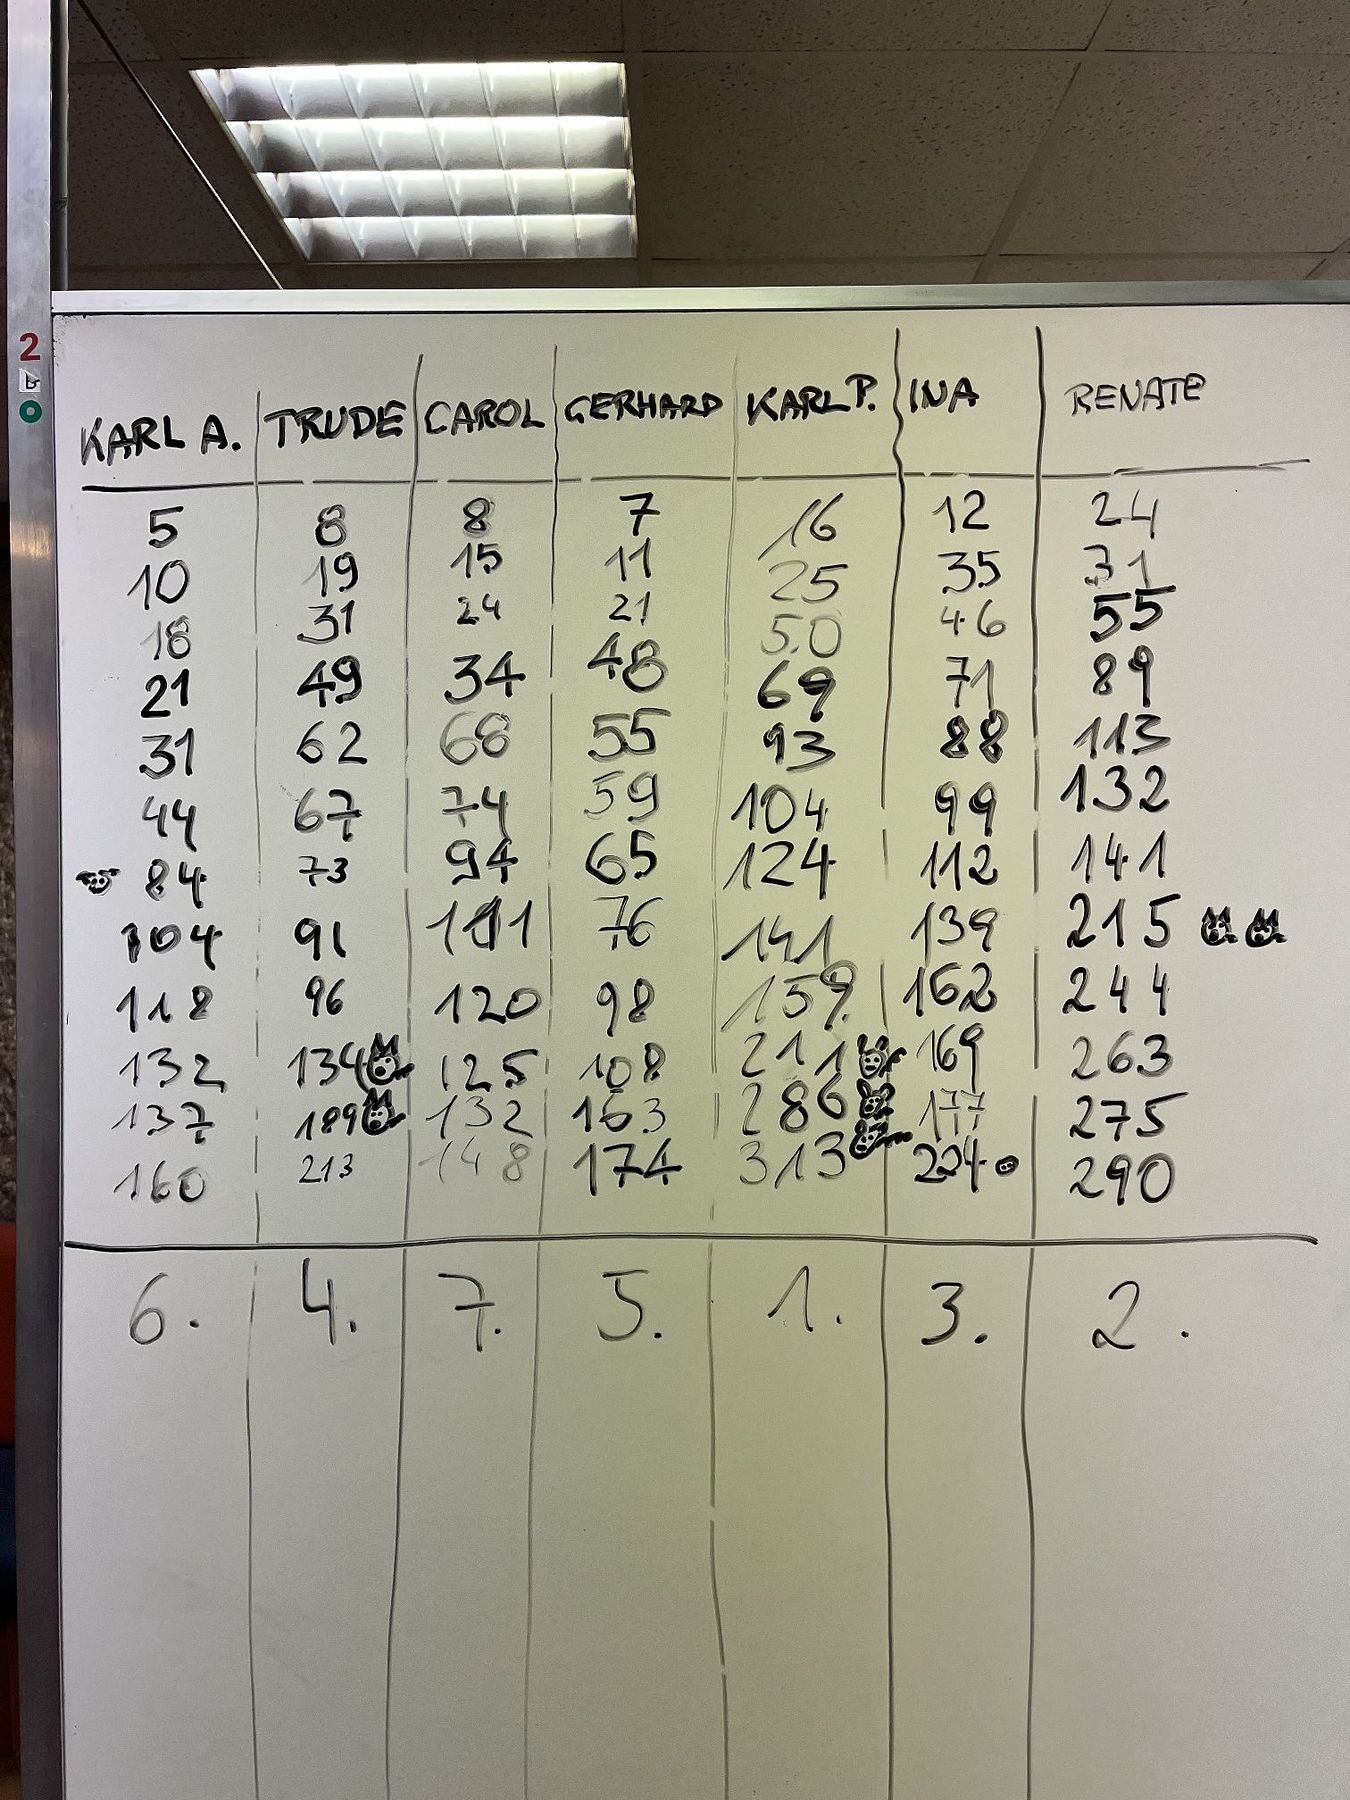 2
KARL A. TRUDE CAROL GERHARD KARL P. INA RENATE
5 8 8 7 16 12 24
10 19 15 11 25 35 31
18 31 24 21 50 46 55
21 49 34 48 69 71 89
31 62 68 55 93 88 113
44 67 74 59 104 99 132
84 73 94 65 124 112 141
104 91 111 76 141 139 215
118 96 120 98 159 162 244
132 134 125 108 211 169 263
137 189 132 163 286 177 275
160 213 148 174 313 224 290
6. 4. 7. 5. 1. 3. 2.